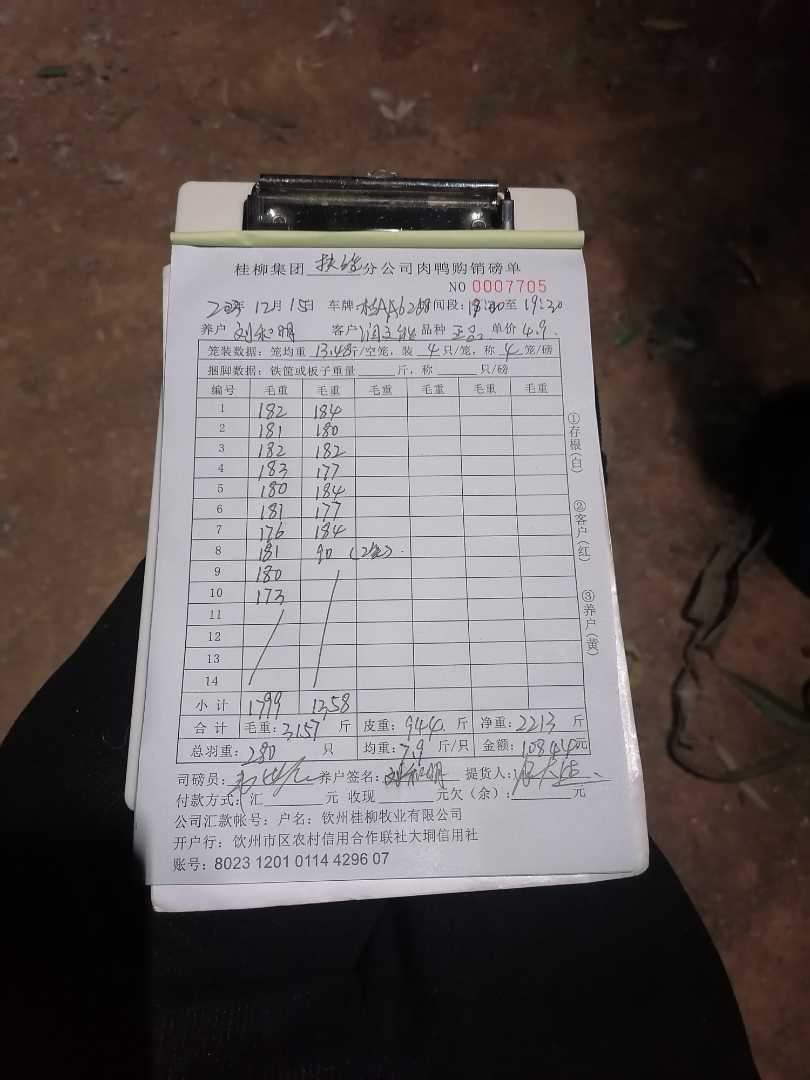 桂柳集团 扶绥 分公司肉鸭购销磅单
NO 0007705
年 12月15日 车牌: 时间段: 18:30至 19:30
养户 刘和明 客户 品种 正品 单价 4.9
笼装数据: 笼均重 13.48斤/空笼, 装 4 只/笼, 称 4 笼/磅
捆脚数据: 铁筐或板子重量 斤, 称 只/磅
编号 毛重 毛重 毛重 毛重 毛重 毛重
1 182 184
2 181 180
3 182 182
4 183 177
5 180 184
6 181 177
7 176 184
8 181 90 (2笼)
9 180
10 173
11
12
13
14
小计 1799 1358
合计 毛重: 3157 斤 皮重: 944 斤 净重: 2213 斤
总羽重: 280 只 均重: 7.9 斤/只 金额: 10844元
司磅员: 养户签名: 刘和明 提货人:
付款方式: 汇 元 收现 元欠(余): 元
公司汇款帐号: 户名: 钦州桂柳牧业有限公司
开户行: 钦州市区农村信用合作联社大垌信用社
账号: 8023 1201 0114 4296 07
①存根(白)
②客户(红)
③养户(黄)